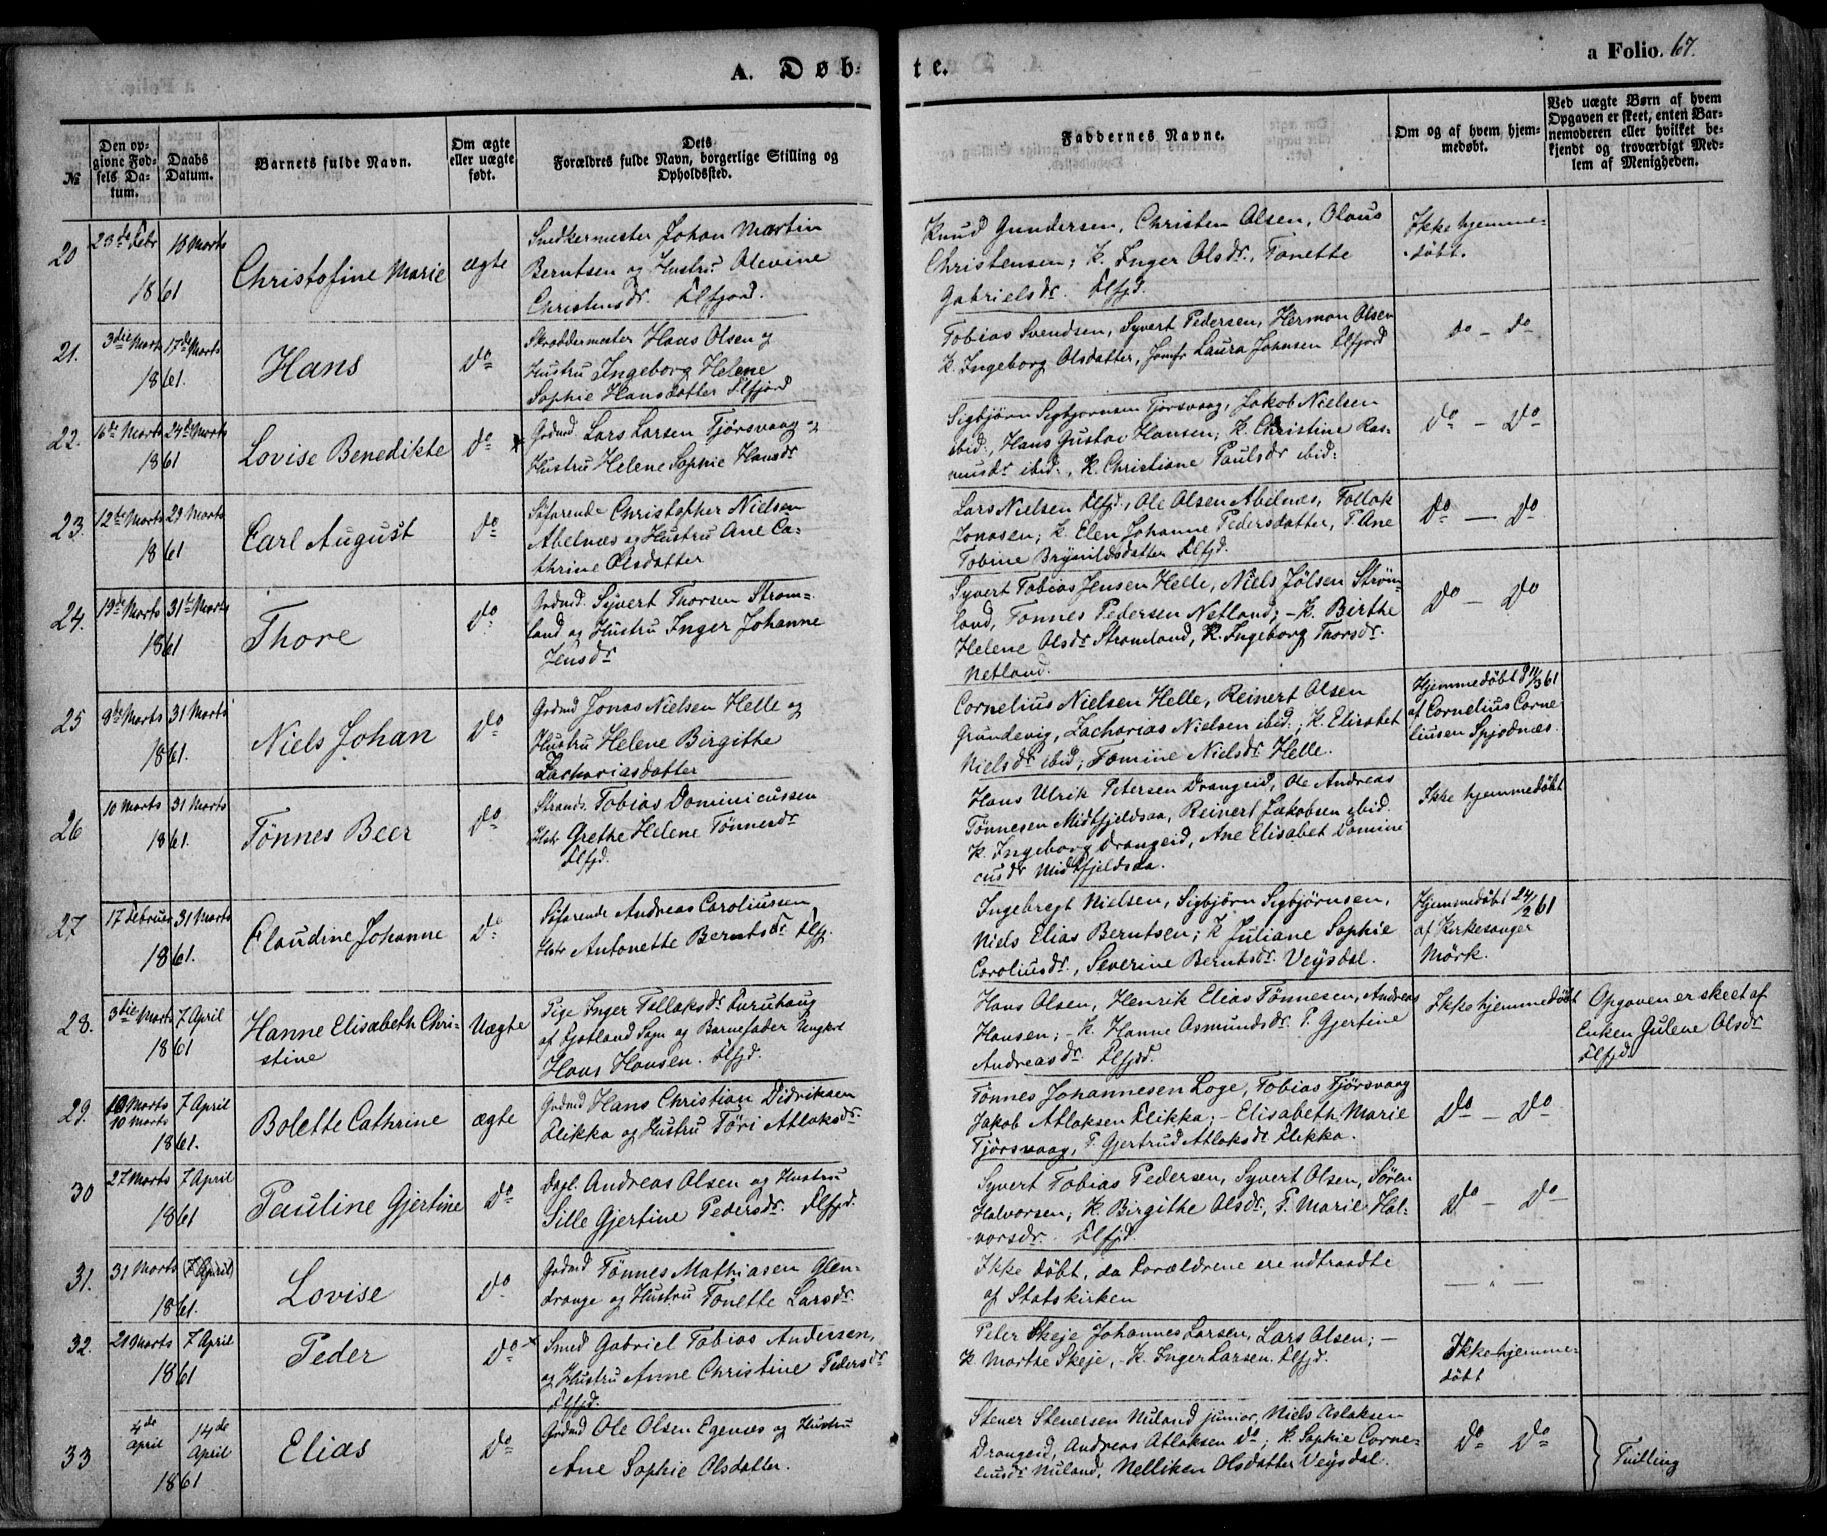 A. Døbte.
a Folio. 67.
№
Den opgivne Fødsels Datum.
Daabs Datum.
Barnets fulde Navn.
Om ægte eller uægte født.
Dets Forældres fulde Navn, borgerlige Stilling og Opholdssted.
Faddernes Navne.
Om og af hvem hjemmedøbt.
Ved uægte Børn af hvem Opgaven er skeet, enten Barnemoderen eller hvilket bekjendt og troværdigt Medlem af Menigheden.
20
23de Febr 1861
18 Marts
Christofine Marie
ægte
Snedkermester Johan Martin
Berntsen og Hustru Olevine
Christensdr. Flfjord.
Knud Gundersen, Christen Olsen, Olaus
Christensen; K. Inger Olsdr., Tonette
Gabrielsdr. Flfjd.
Ikke hjemme-
døbt.
21.
3die Marts 17de Marts
1861.
Hans
do
Skræddermester Hans Olsen og
Hustru Ingeborg Helene
Sophie Hansdatter Flfjord
Tobias Svendsen, Syvert Pedersen, Herman Olsen
K. Ingeborg Olsdatter, Jomfr Laura Johnsen Flfjord
do - do
22.
16de Marts 24de Marts
1861
Lovise Benedikte
do
Grdmd Lars Larsen Tjørsvaag og
Hustru Helene Sophie Hansdr
Sigbjörn Sigbjørnsen Tjorsvaag, Jakob Nielsen
ibid., Hans Gustav Hansen; K. Christine Ras-
musdr ibid., K. Christiane Paulsdr ibid:
do - do
23.
12te Marts 29 Marts
1861
Carl August
do
Søfarende Christopher Nielsen
Abelnæs og Hustru Ane Ca-
thrine Olsdatter
Lars Nielsen Flfjd., Ole Olsen Abelnæs, Tollak
Jonasen; K. Elen Johanne Pedersdatter, P. Ane
Tobine Brynildsdatter Flfjd.
do - do
24.
19de Marts 31te Marts
1861
Thore
do
Grdmd. Syvert Thorsen Strøm-
land og Hustru Inger Johanne
Jensdr
Syvert Tobias Jensen Helle, Niels Jölsen Strøm-
land, Tonnes Pedersen Netland; - K. Birthe
Helene Olsdr Strømland, K. Ingeborg Thorsdr.
Netland.
do - do
25
8de Marts 31 Marts
1861.
Niels Johan
do
Grdmd Jonas Nielsen Helle og
Hustru Helene Birgithe
Zachariasdatter
Cornelius Nielsen Helle, Reinert Olsen
Grundevig, Zacharias Nielsen ibid.; K. Elisabet
Nielsdr ibid; Tomine Nielsdr Helle.
Hjemmedøbt d 11/3 61
af Cornelius Corne-
liusen Spjodnæs.
26
10 Marts 31 Marts
1861.
Tönnes Beer
do
Strands. Tobias Dominicussen
Hstr Grethe Helene Tönnesdr
Flfjd.
Hans Ulrik Petersen Drangeid, Ole Andreas
Tönnesen Midtfjeldsaa, Reinert Jakobsen ibid.
K. Ingeborg Drangeid, Ane Elisabet Domini-
cusdr Midtfjeldsaa.
Ikke hjemmedøbt
27
17 Februar 31 Marts
1861.
Claudine Johanne
do
Søfarende Andreas Caroliussen
Hstr Antonette Berntsdr Flfj.
Ingebregt Nielsen, Sigbjörn Sigbjørnsen,
Niels Elias Berntsen; K Juliane Sophie
Caroliusdr., Severine Berntsdr. Veisdal.
Hjemmedøbt 24/2 61
af Kirkesanger
Mörk.
28.
3die Marts 7 April
1861
Hanne Elisabeth Chri-
stine
Uægte
Pige Inger Tollaksdr Furuhaug
af Gjotland Sogn og Barnefader Ungkarl
Hans Hansen. Flfjd.
Hans Olsen, Henrik Elias Tønnesen, Andreas
Hansen; - K. Hanne Asmundsdr. P. Gjertine
Andreasdr. Flfjd.
Ikke hjemmedøbt
Opgaven er skeet af
Enken Gulene Olsdr
Flfjd.
29.
10 Marts 7 April
10 Marts
1861.
Bolette Cathrine
ægte
Grdmd Hans Christian Didriksen
Flikka og Hustru Töri Atlaksdr.
Tönnes Johannesen Loge, Tobias Tjørsvaag
Jakob Atlaksen Flikka; - Elisabeth Marie
Tjørsvaag, P. Gjertrud Atlaksdr Flikka.
do - do
30
27 Marts 7 April
1861
Pauline Gjertine
do
Dagl. Andreas Olsen og Hustru
Sille Gjertine Pedersdr. Flfjd.
Syvert Tobias Pedersen, Syvert Olsen, Sören
Halvorsen; K. Birgithe Olsdr, P. Marie Hal-
vorsdr. Flfjd.
do - do
31.
31 Marts (7 April)
1861.
Lovise
do
Grdmd Tönnes Mathiasen Glen-
drange og Hustru Tonette Larsdr.
Ikke døbt, da Forældrene ere udtraadte
af Statskirken
32.
21 Marts 7 April
1861
Peder
do
Smed Gabriel Tobias Andersen,
og Hustru Anne Christine Pedersdr
Flfjd.
Peter Skeje Johannes Larsen, Lars Olsen; -
K. Marthe Skeje, - K. Inger Larsen. Flfjd.
Ikke hjemme-
døbt
33
4de April 14de April
1861
Elias
do
Grdmd Ole Olsen Egenæs og Hustru
Ane Sophie Olsdatter.
Stener Stenersen Nuland junior, Niels Aslaksen
Drangeid, Andreas Atlaksen do; K. Sophie Corne-
liusdr Nuland, Nelliken Olsdatter Veisdal.
do do
Tvilling